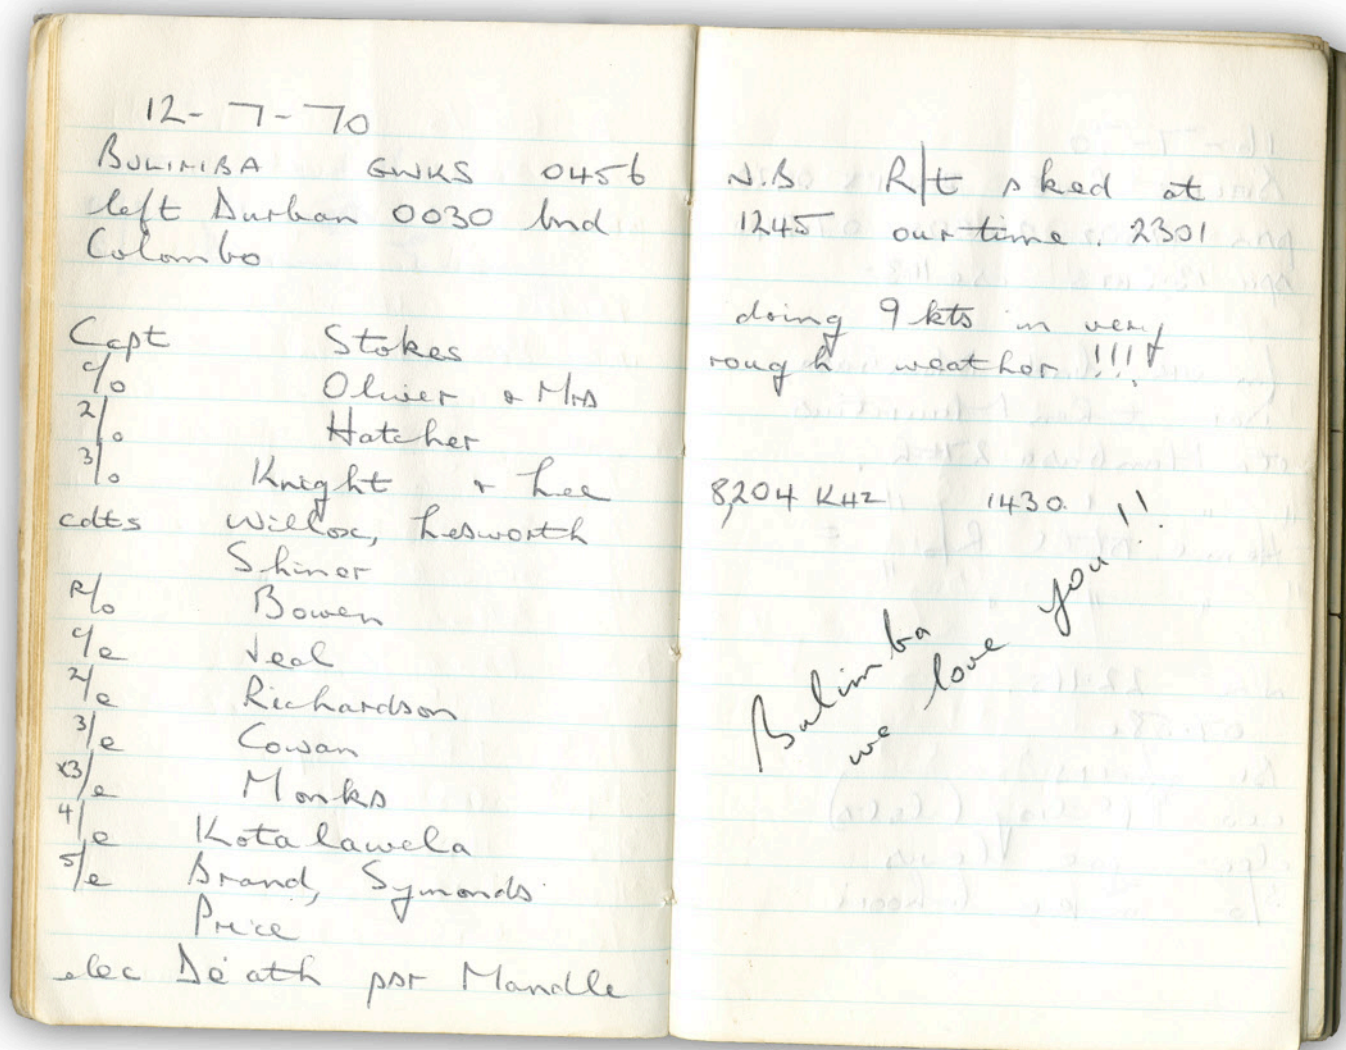 12-7-70
BULIMBA GWKS 0456
left Durban 0030 bnd
Colombo
Capt Stokes
c/o Oliver & Mrs
2/o Hatcher
3/o Knight & Lee
cdts Willox, Lesworth
Shiner
R/o Bowen
c/e Veal
2/e Richardson
3/e Cowan
x3/e Monks
4/e Kotalawela
5/e Brand, Symonds
Price
elec De'ath psr Mandle
N.B R/t sked at
1245 our time. 2301
doing 9 kts in very
rough weather !!!!
8,204 KHz 1430.
Bulimba
we love you !!